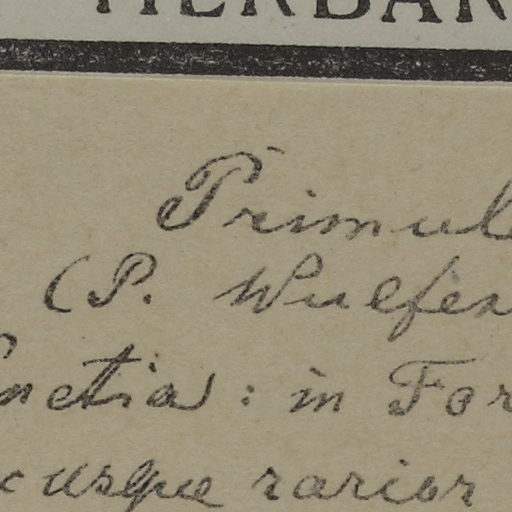 HERBAR
Primul
(P. Wulfen
netia: in For
rarior